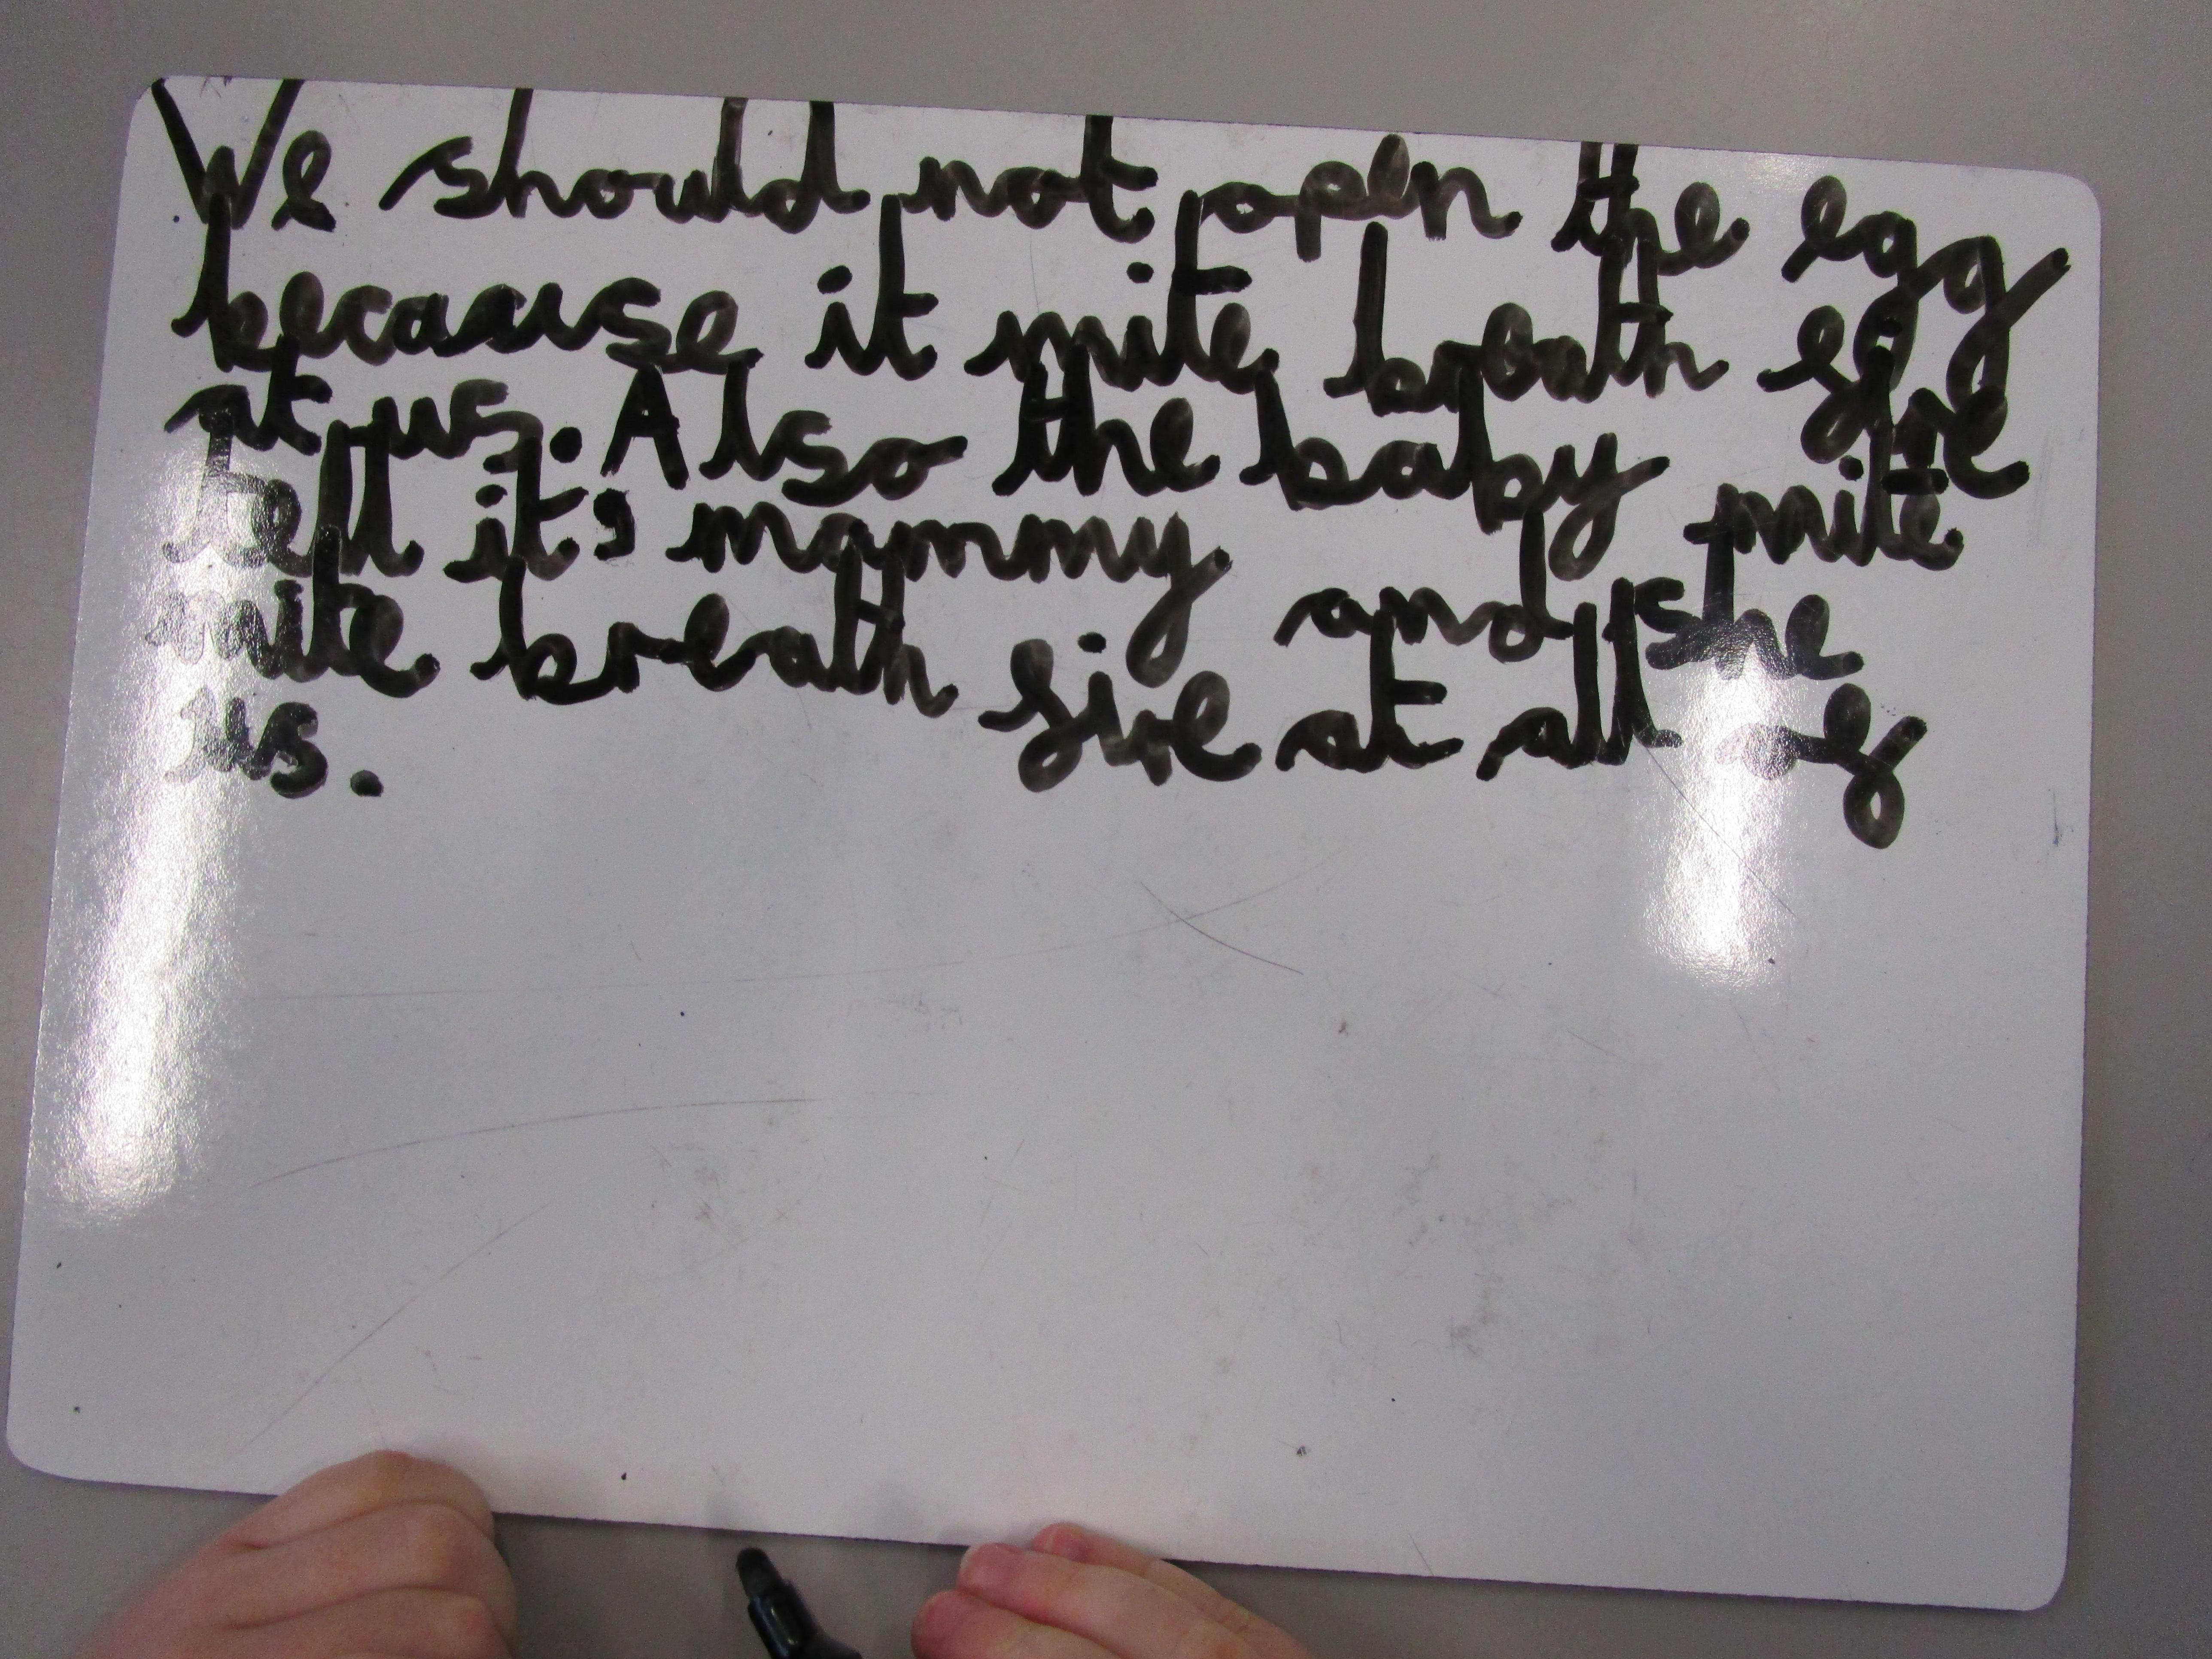 We should not open the egg
because it mite breath fire
at us. Also the baby mite
tell it's mammy and she
mite breath fire at all of
us.